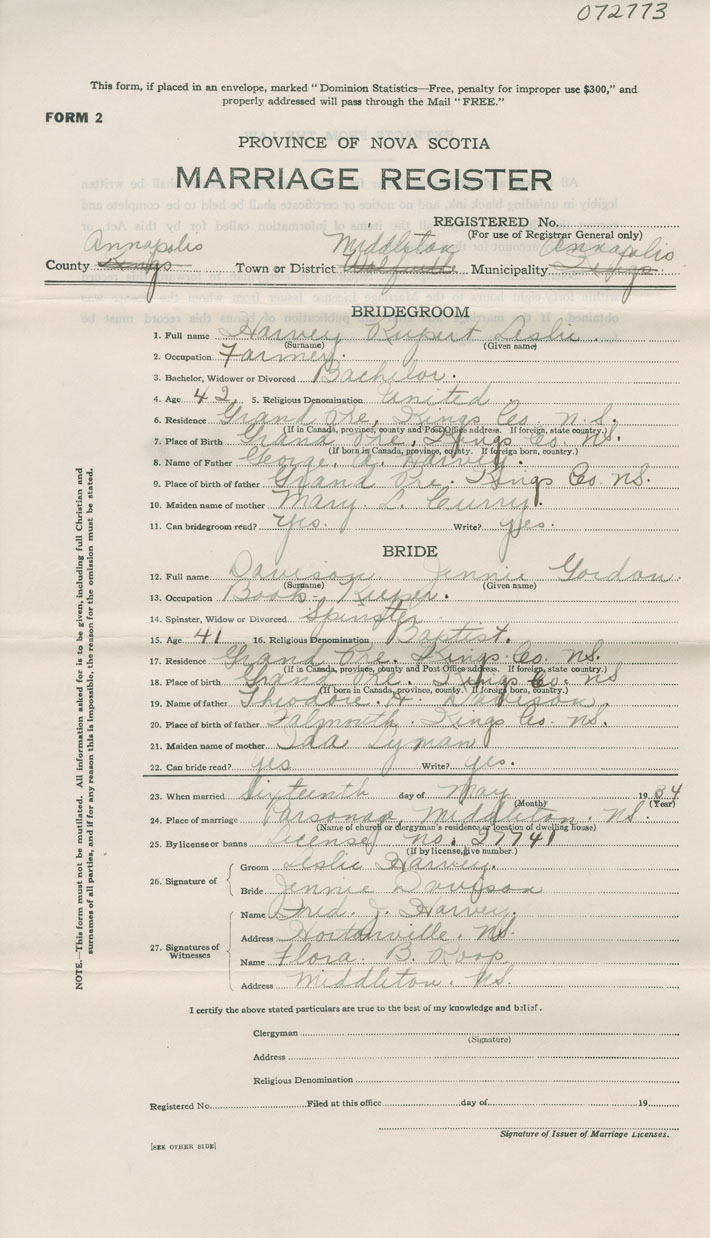 072773
This form, if placed in an envelope, marked "Dominion Statistics—Free, penalty for improper use $300," and
properly addressed will pass through the Mail "FREE."
FORM 2
PROVINCE OF NOVA SCOTIA
MARRIAGE REGISTER
REGISTERED No.
(For use of Registrar General only)
Annapolis Middleton Annapolis
County Kings Town or District Wolfville Municipality Kings
BRIDEGROOM
1. Full name Harvey Rupert Leslie.
(Surname) (Given name)
2. Occupation Farmer.
3. Bachelor, Widower or Divorced Bachelor.
4. Age 42. 5. Religious Denomination United
6. Residence Grand Pre, Kings Co. N.S.
(If in Canada, province, county and Post Office address. If foreign, state country.)
7. Place of Birth Grand Pre, Kings Co. NS.
(If born in Canada, province, county. If foreign born, country.)
8. Name of Father George. A. Harvey.
9. Place of birth of father Grand Pre. Kings Co. NS.
10. Maiden name of mother Mary. L. Curry.
11. Can bridegroom read? Yes. Write? yes.
BRIDE
12. Full name Davison Jennie Gordon.
(Surname) (Given name)
13. Occupation Book-Keeper.
14. Spinster, Widow or Divorced Spinster
15. Age 41 16. Religious Denomination Baptist.
17. Residence Grand Pre. Kings Co. NS.
(If in Canada, province, county and Post Office address. If foreign, state country.)
18. Place of birth Grand Pre. Kings Co. NS
(If born in Canada, province, county. If foreign born, country.)
19. Name of father Theodore. H. Davison.
20. Place of birth of father Falmouth. Kings Co. NS.
21. Maiden name of mother Ida Lyman
22. Can bride read? yes Write? yes.
23. When married Sixteenth day of May 1934
(Month) (Year)
24. Place of marriage Parsonage, Middleton. NS.
(Name of church or clergyman's residence, or location of dwelling house)
25. By license or banns License No. 27741
(If by license, give number.)
26. Signature of
Groom Leslie Harvey.
Bride Jennie Davison
27. Signatures of Witnesses
Name Fred. J. Harvey.
Address Hortonville. NS.
Name Flora. B. Roop
Address Middleton. NS.
I certify the above stated particulars are true to the best of my knowledge and belief.
Clergyman
(Signature)
Address
Religious Denomination
Registered No. Filed at this office day of 19
Signature of Issuer of Marriage Licenses.
[SEE OTHER SIDE]
NOTE.—This form must not be mutilated. All information asked for is to be given, including full Christian and
surnames of all parties, and if for any reason this is impossible, the reason for the omission must be stated.